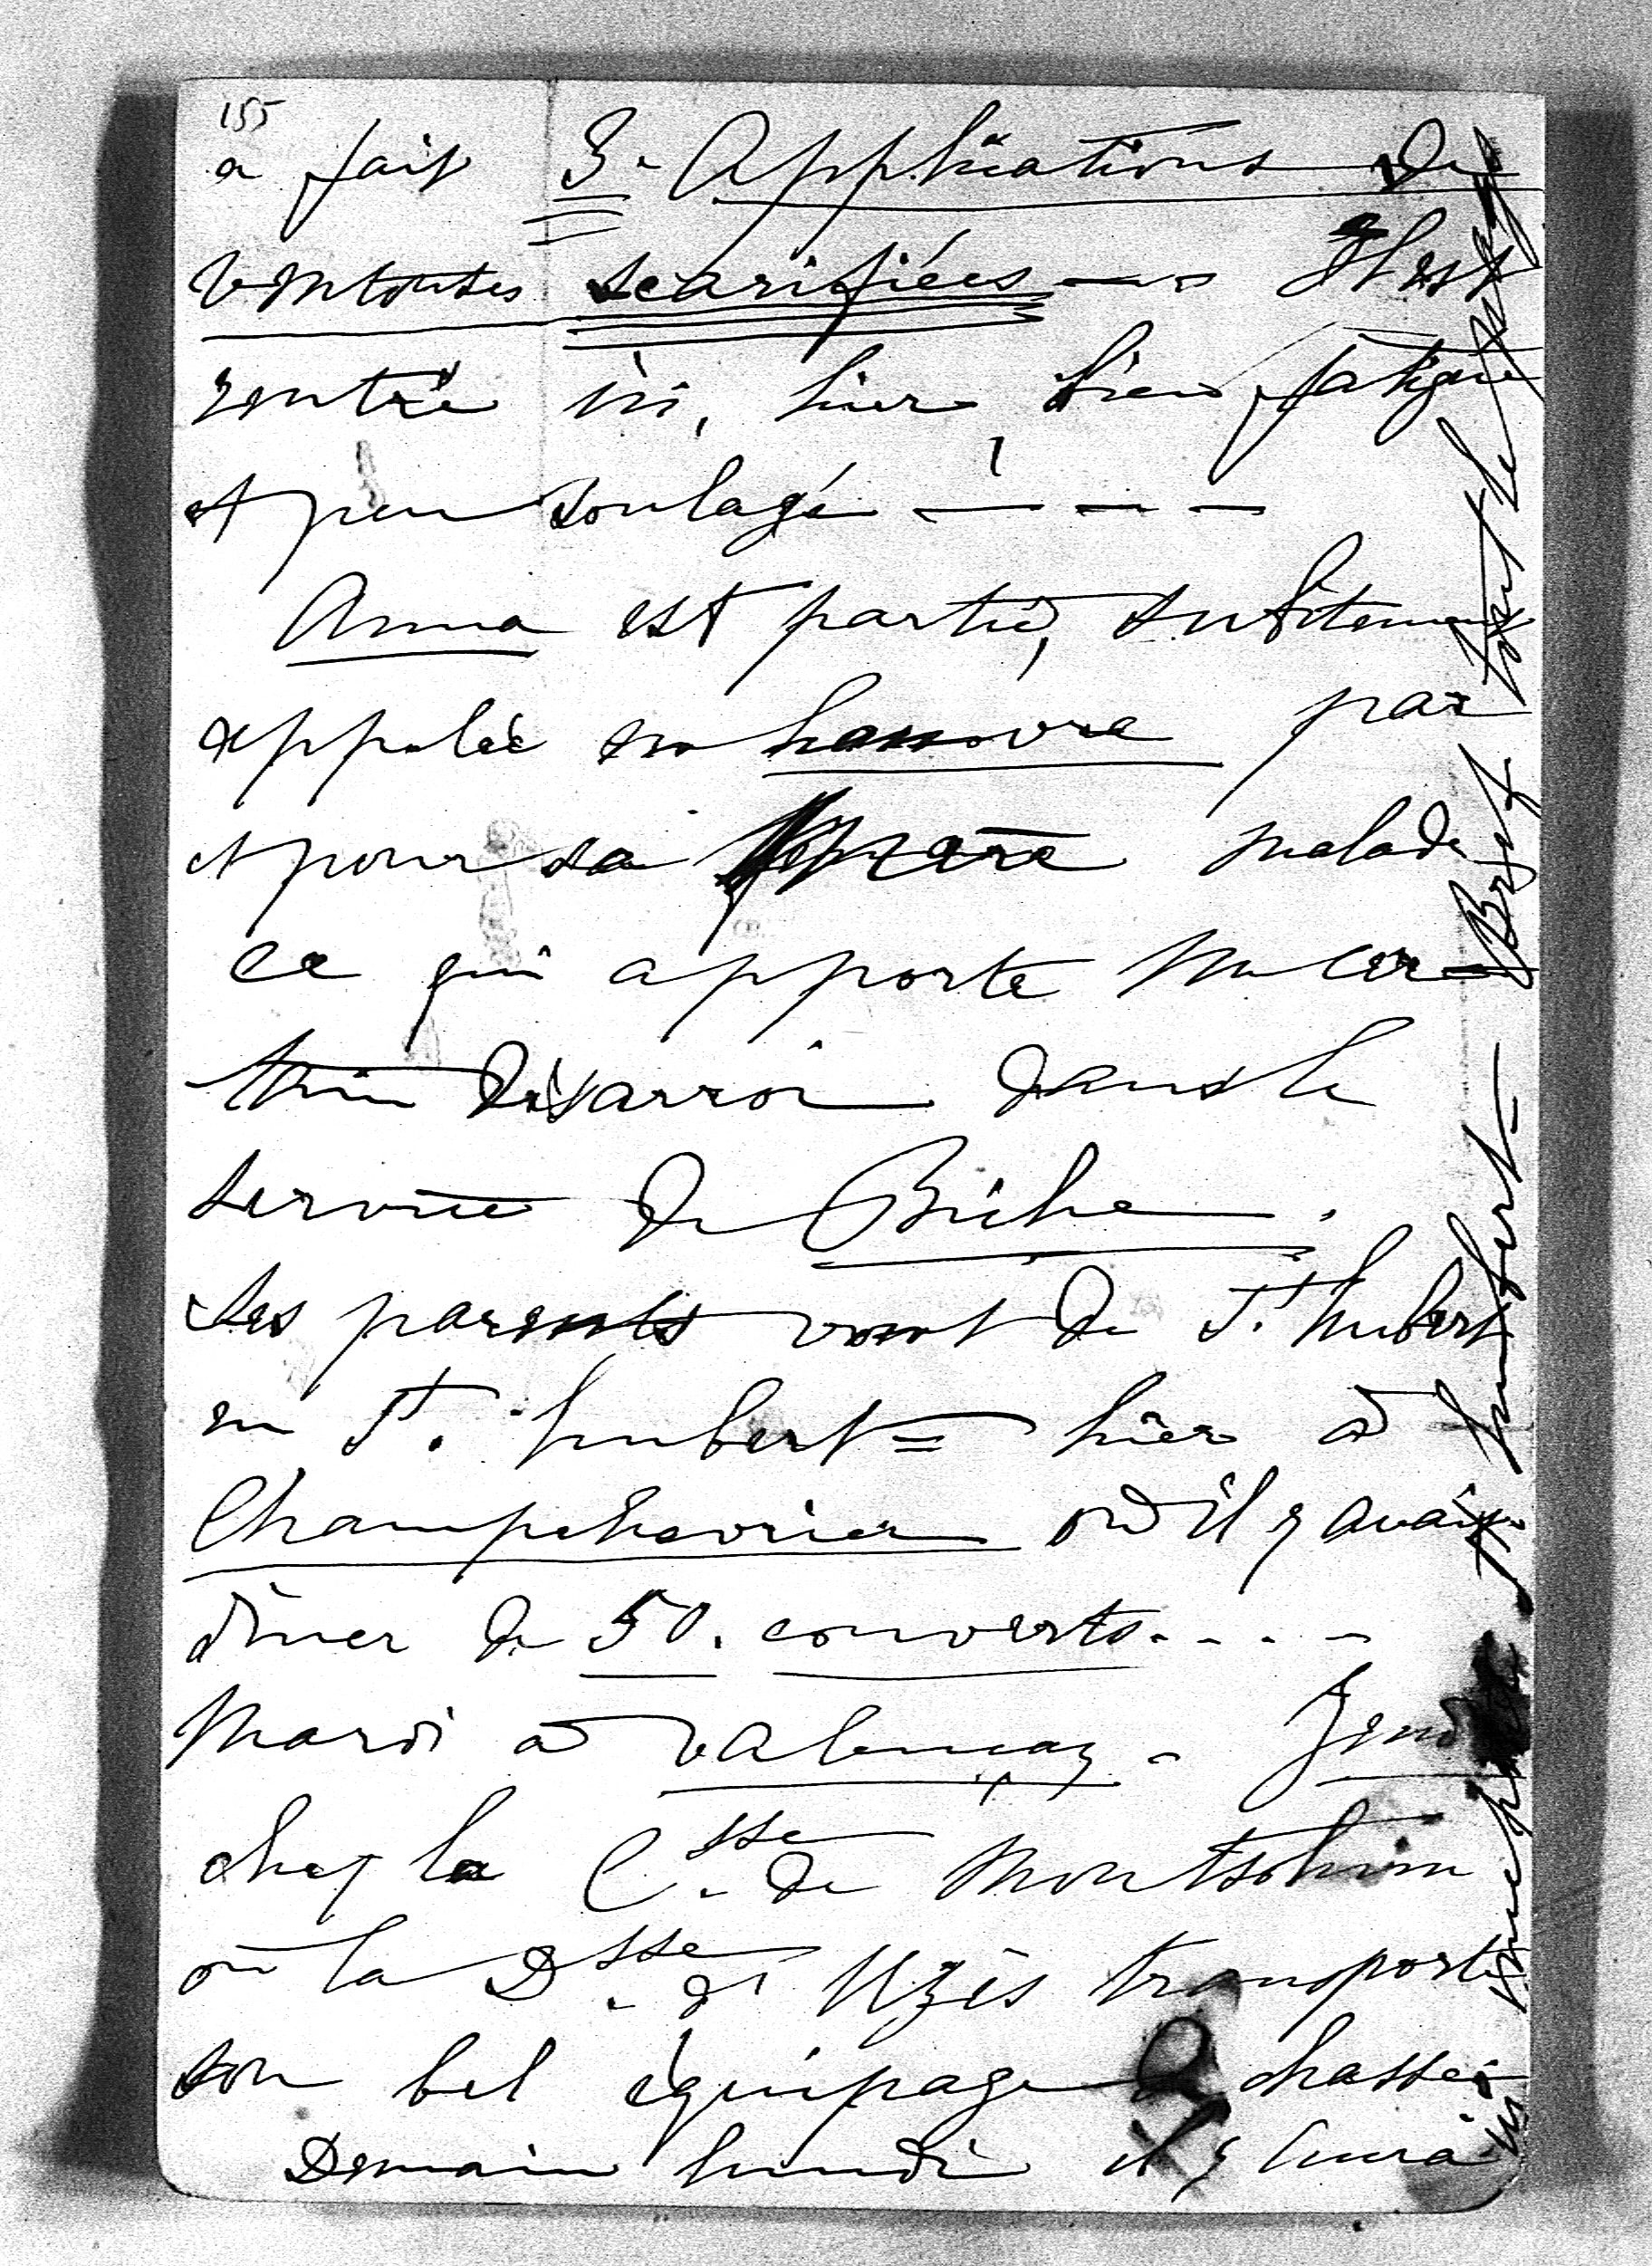 155
a fait 3. Applications de
ventouses scarifiées — Il est
rentré ici, hier bien fatigué
et peu soulagé — — —
Anna est partie, subitement
appelée en hanovre par
et pour sa mère malade
ce qui apporte un cer-
tain désarroi dans le
service de Biche.
Ses parents vont de St. hubert
en St. hubert = hier à
Champchevrier où il y avait
dîner de 50. couverts. . . . –
Mardi à Valençay. Jeudi
chez la Csse. de Montsolium
où la Dsse. d'Uzès transporte
son bel équipage de chasse
Demain lundi il y aura
ici une St. humbert — Bref tout le